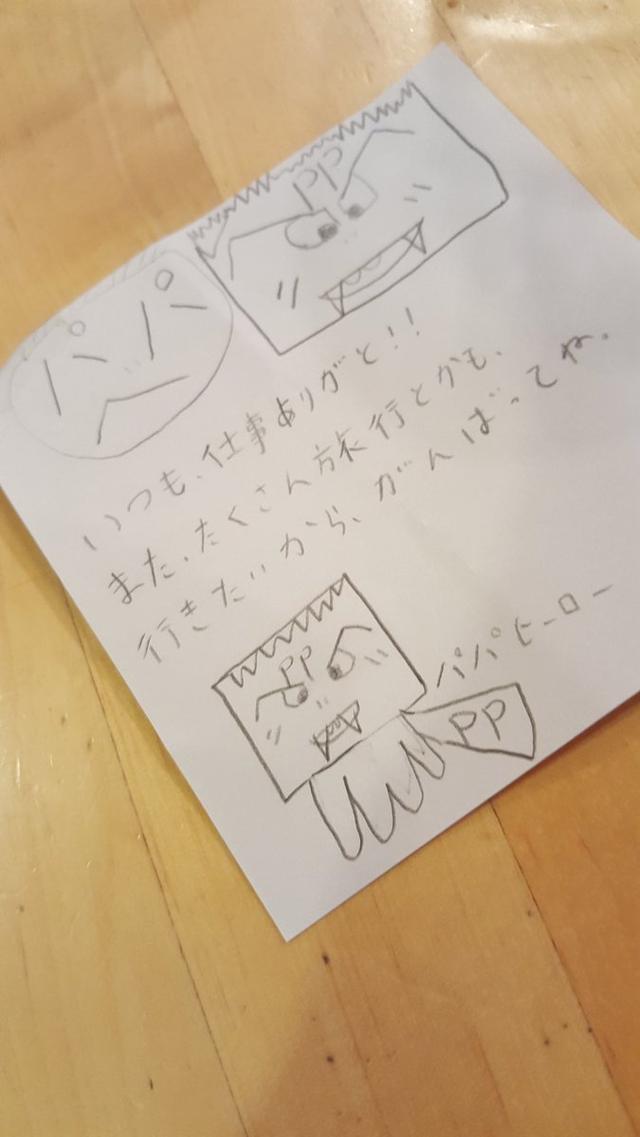 PP
パパ
いつも、仕事ありがと!!
また、たくさん旅行とかも、
行きたいから、がんばってね。
PP
パパヒーロー
PP